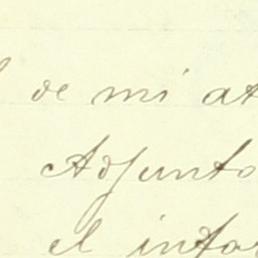 de mi at
Adjunto
el infor